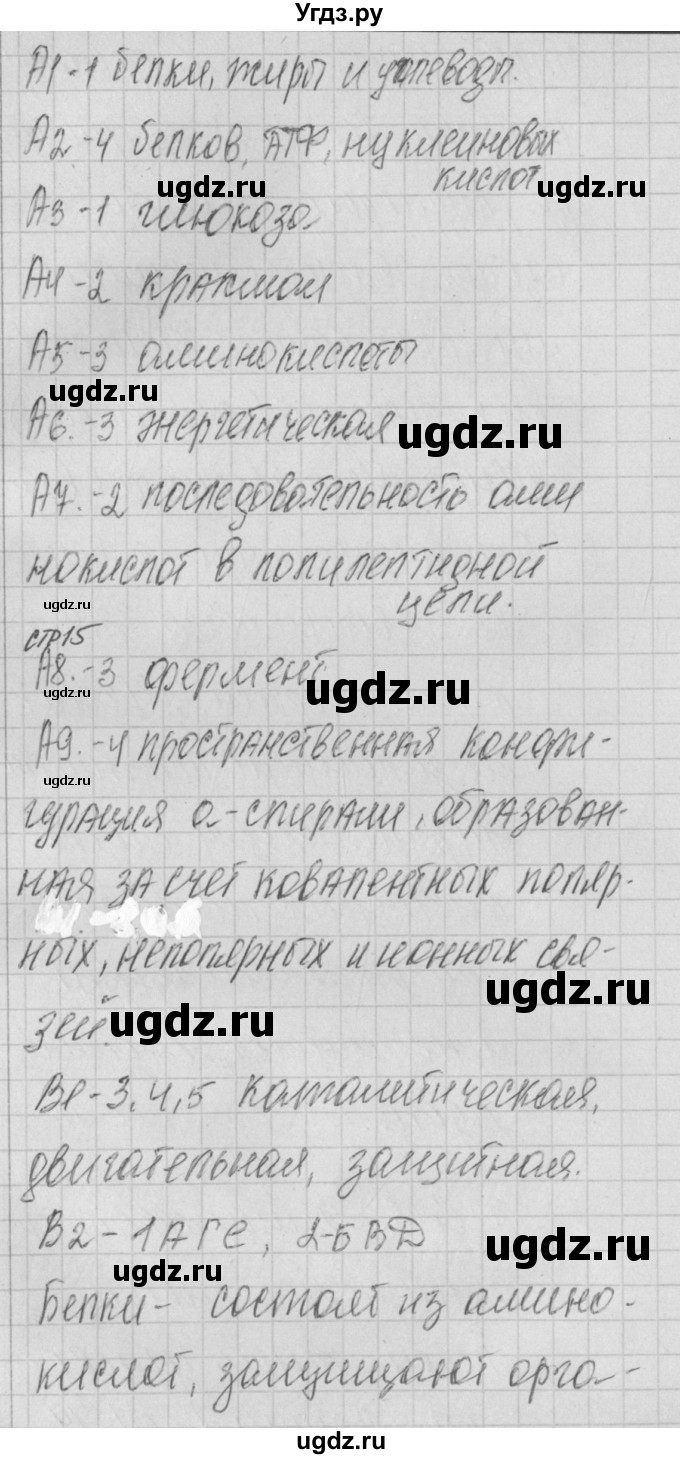 Угдз.ру
А1-1 белки, жиры и углеводы.
А2-4 белков, АТФ, нуклеиновых
кислот
ugdz.ru ugdz.ru
А3-1 глюкоза
А4-2 крахмал
А5-3 аминокислоты
ugdz.ru
А6.-3 энергетическая ugdz.ru
А7.-2 последовательность ами
нокислот в полипептидной
цепи.
ugdz.ru
стр15
А8.-3 фермент ugdz.ru
А9.-4 пространственная конфи-
ugdz.ru
гурация а-спирали, образован-
ная за счет ковалентных поляр-
ных, неполярных и ионных свя-
ugdz.ru
зей. ugdz.ru
В1-3,4,5 каталитическая,
двигательная, защитная.
В2-1АГЕ, 2-БВД ugdz.ru
ugdz.ru
Белки- состоят из амино-
кислот, защищают орга-
ugdz.ru